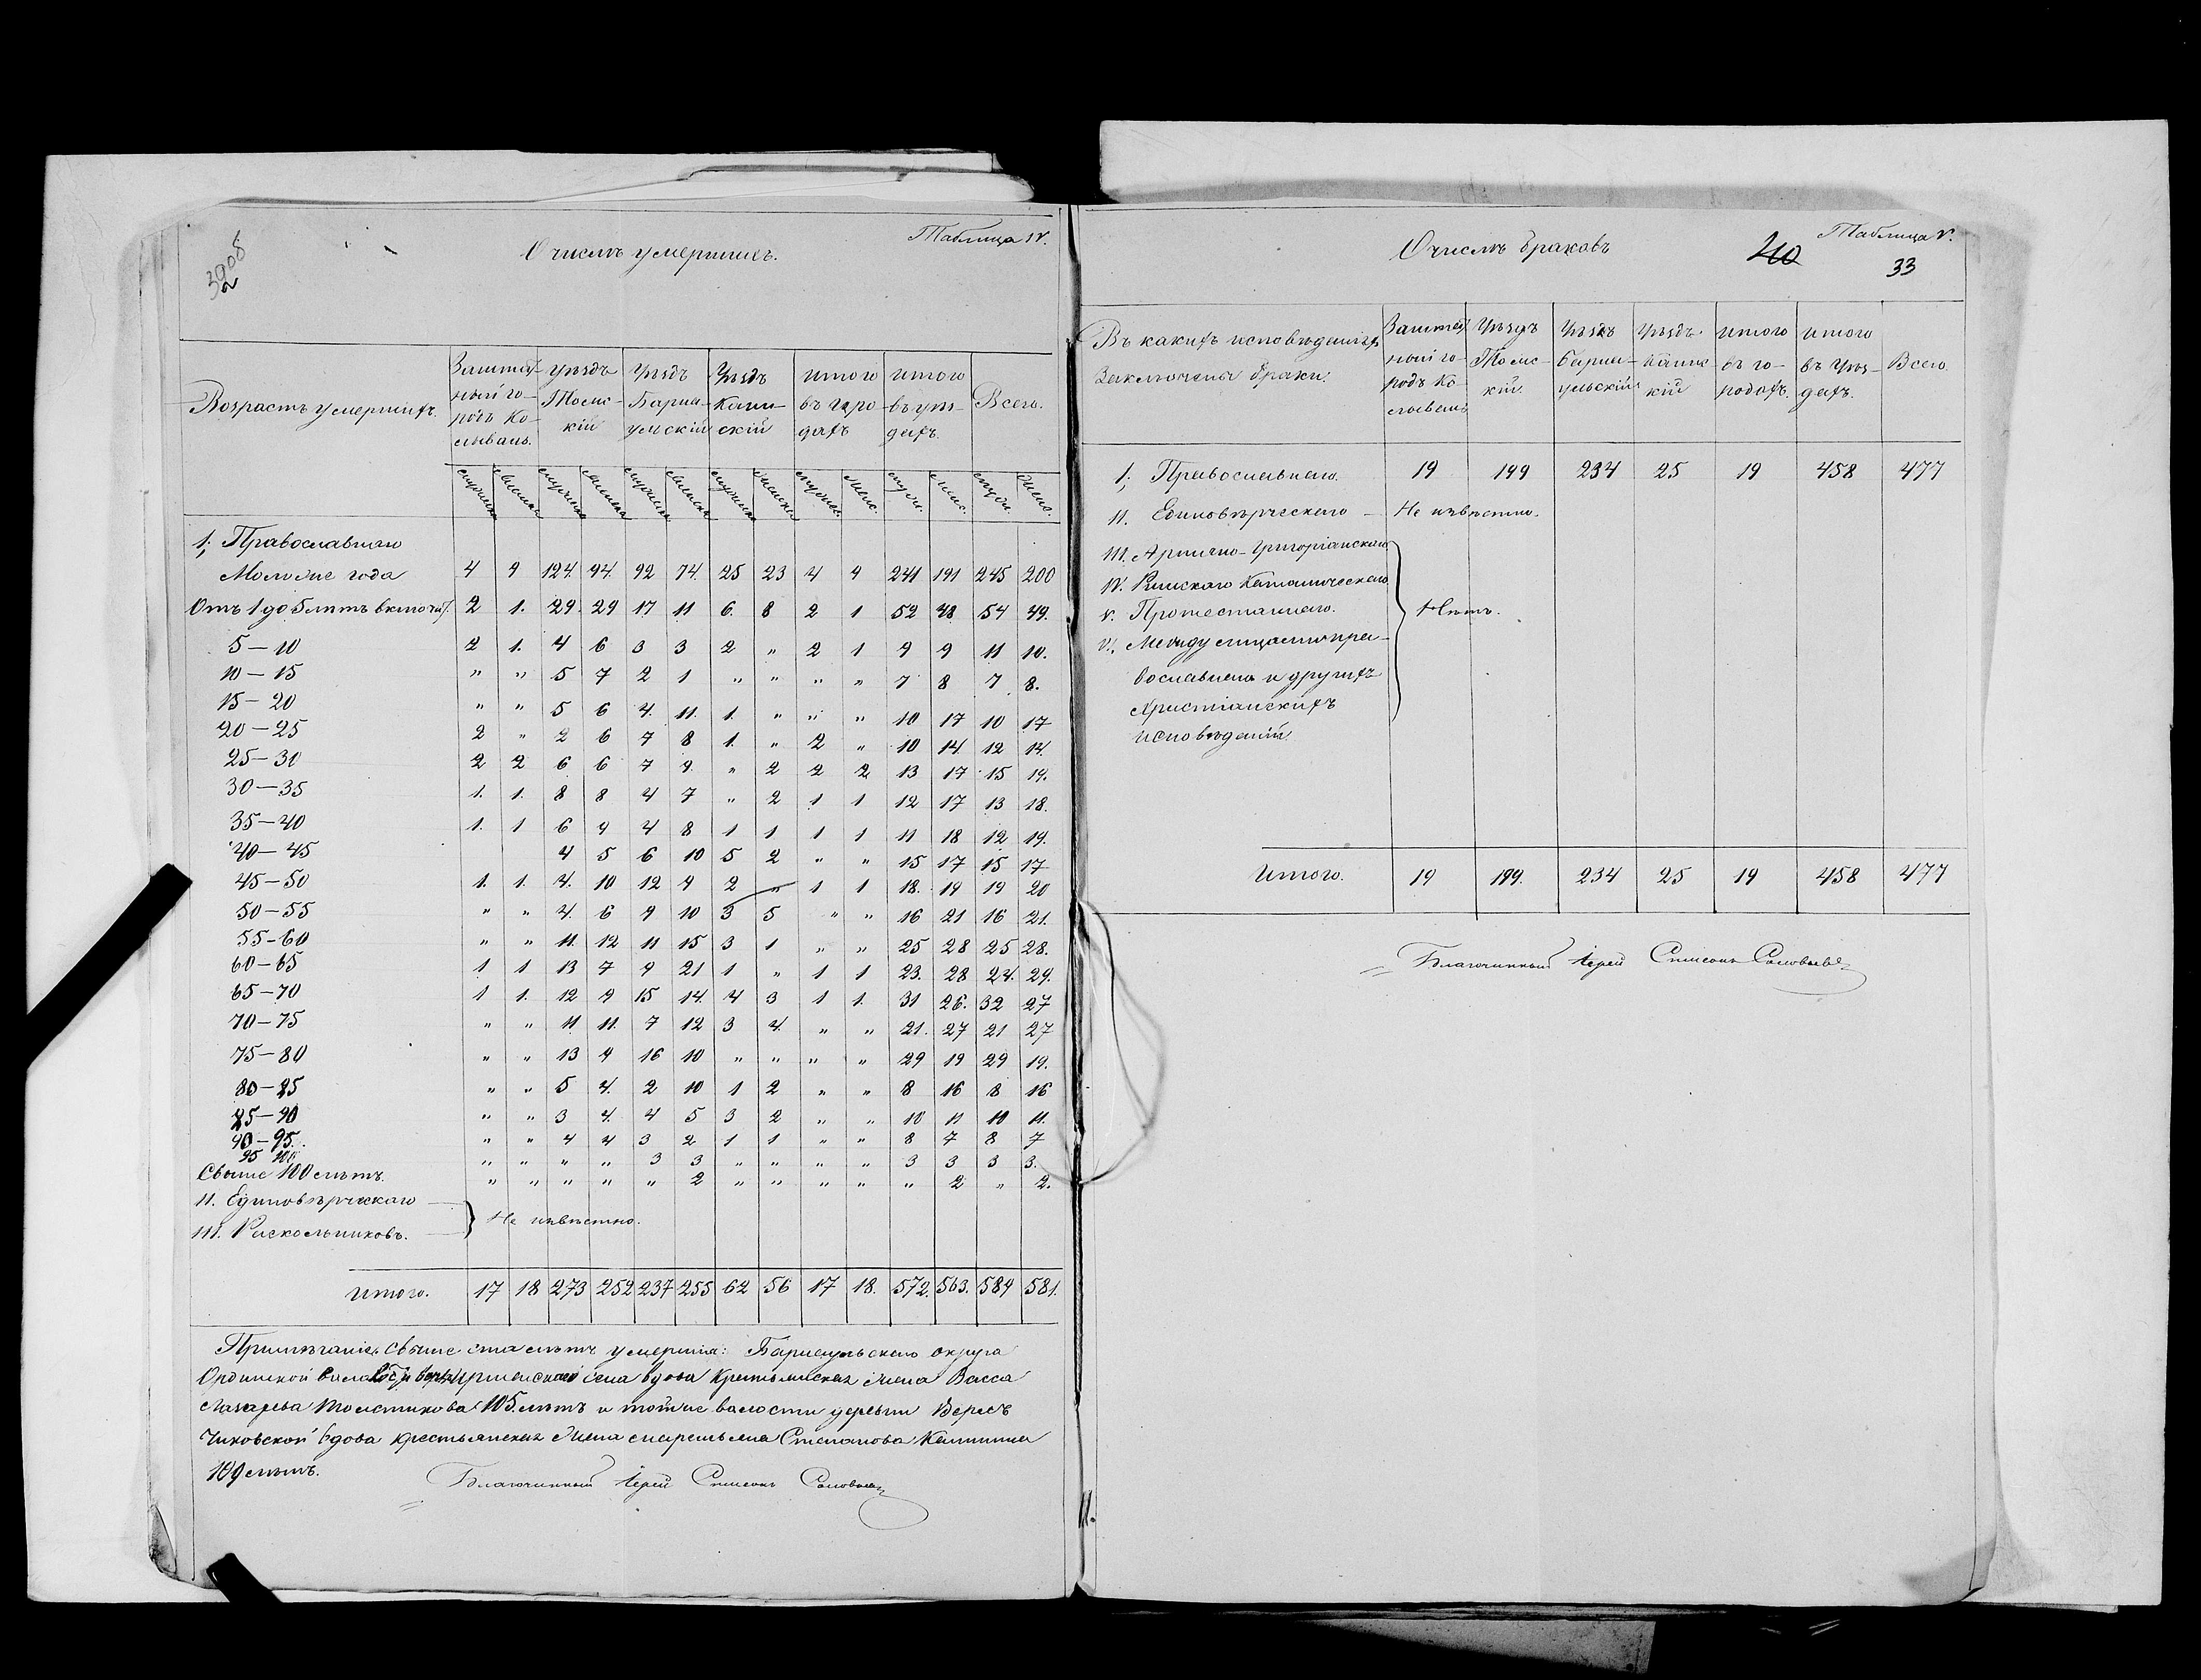 3908
2
Таблица IV.
О числѣ умершихъ.
Возрастъ умершихъ. Заштатный городъ Колывань. Уѣздъ Томскій Уѣздъ Барнаульскій Уѣздъ Каинскій итого въ городахъ итого въ уѣздахъ. Всего.
мужеска женска мужеска женска мужеска женска мужеска женска мужеск. женс. муж. женс. муж. женс.
1; Православнаго
Моложе года 4 9 124. 94. 92 74. 25 23 4 9 241 191 245 200
Отъ 1 до 5 лѣтъ включит. 2 1. 29. 29 17 11 6. 8 2 1 52 48 54 49.
5—10 2 1. 4 6 3 3 2 „ 2 1 9 9 11 10.
10—15 „ „ 5 7 2 1 „ „ „ „ 7 8 7 8.
15—20 „ „ 5 6 4. 11. 1. „ „ „ 10 17 10 17
20—25 2 „ 2 6 7 8 1. „ 2 „ 10 14. 12 14.
25—30 2 2 6 6 7 9. „ 2 2 2 13 17 15 19.
30—35 1. 1. 8 8 4 7 „ 2 1 1 12 17 13 18.
35—40 1. 1 6 9 4 8 1 1 1 1 11 18 12 19.
40—45 4 5 6 10 5 2 „ „ 15 17 15 17
45—50 1. 1. 4. 10 12 9 2 „ 1 1 18. 19 19 20
50—55 „ „ 4. 6 9 10 3 5 „ „ 16 21 16 21.
55-60 „ „ 11. 12 11 15 3 1 „ „ 25 28 25 28.
60-65 1 1 13 7 9 21 1 „ 1 1 23. 28 24. 29.
65-70 1 1. 12 9 15 14. 4 3 1 1. 31 26. 32 27
70-75 „ „ 11. 11. 7 12 3 4. „ „ 21. 27 21 27
75-80 „ „ 13 9 16 10 „ „ „ „ 29 19 29 19.
80-85 „ „ 5 4. 2 10 1 2 „ „ 8 16 8 16
85-90 „ „ 3 4. 4 5 3 2 „ „ 10 11 10 11.
90-95. „ „ 4 4 3 2 1 1 „ „ 8 7 8 7
95 100 „ „ „ „ 3 3 „ „ „ „ 3 3 3 3.
Свыше 100 лѣтъ. „ „ „ „ „ 2 „ „ „ „ „ 2 „ 2.
II. Единовѣрческаго
Не извѣстно.
III. Раскольниковъ.
Итого. 17 18 273 252 237 255 62 56 17 18. 572. 563. 589 581.
Примѣчаніе. Свыше ста лѣтъ умершія: Барнаульскаго округа
Ординской волости села вдова крестьянская жена Васса
Лазарева Толстикова 105. лѣтъ и той же волости деревни Верхъ
Чиковской вдова крестьянская жена Степанова Калинина
109 лѣтъ.
Благочинный Іерей Симеонъ Соловьевъ
Таблица V.
О числѣ браковъ
40
33
Въ какихъ исповѣданіяхъ заключены браки. Заштатный городъ Колывань Уѣздъ Томскій. Уѣздъ Барнаульскій Уѣздъ Каинскій итого въ городахъ. итого въ уѣздахъ. Всего.
1; Православнаго. 19 199 234 25 19 458 477
II. Единовѣрческаго — Не извѣстно.
III. Армяно-Григоріанскаго
IV. Римскаго Католическаго
V. Протестантскаго. Нѣтъ.
VI. Между лицами пра-
вославнаго и другихъ
Христіанскихъ
исповѣданій
Итого. 19 199. 234 25 19 458 477
Благочинный Іерей Симеонъ Соловьевъ